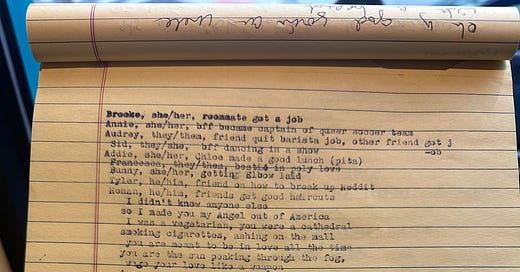 Brooke, she/her, roommate got a job
Annie, she/her, bff became captain of queer soccer team
Audrey, they/them, friend quit barista job, other friend got j
-ob
Sid, they/she, bff dancing in a show
Addie, she/her, Chloe made a good lunch (pita)
Francesca, they/them, bestie in poly love
Bunny, she/her, getting elbow laid
Tyler, he/him, friend on how to break up Reddit
Ronan, he/him, friends got good haircuts
I didn't know anyone else
so I made you my Angel out of America
I was a vegetarian, you were a cathedral
smoking cigarettes, ashing on the mall
you are meant to be in love all the time
you are the sun peaking through the fog,
your love like a weapon